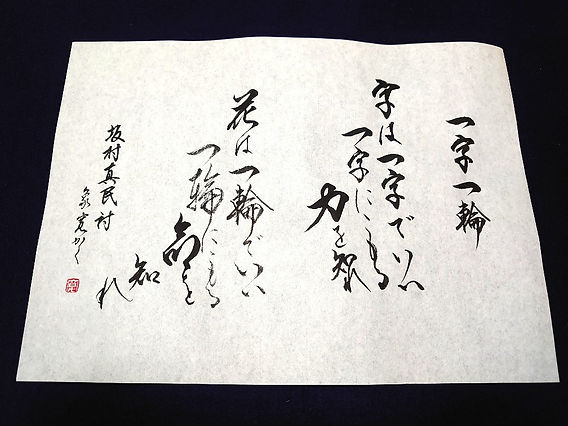 一字一輪
字は一字でいい
一字にこもる
力を知れ
花は一輪でいい
一輪にこもる
命を
知れ
坂村真民
かく